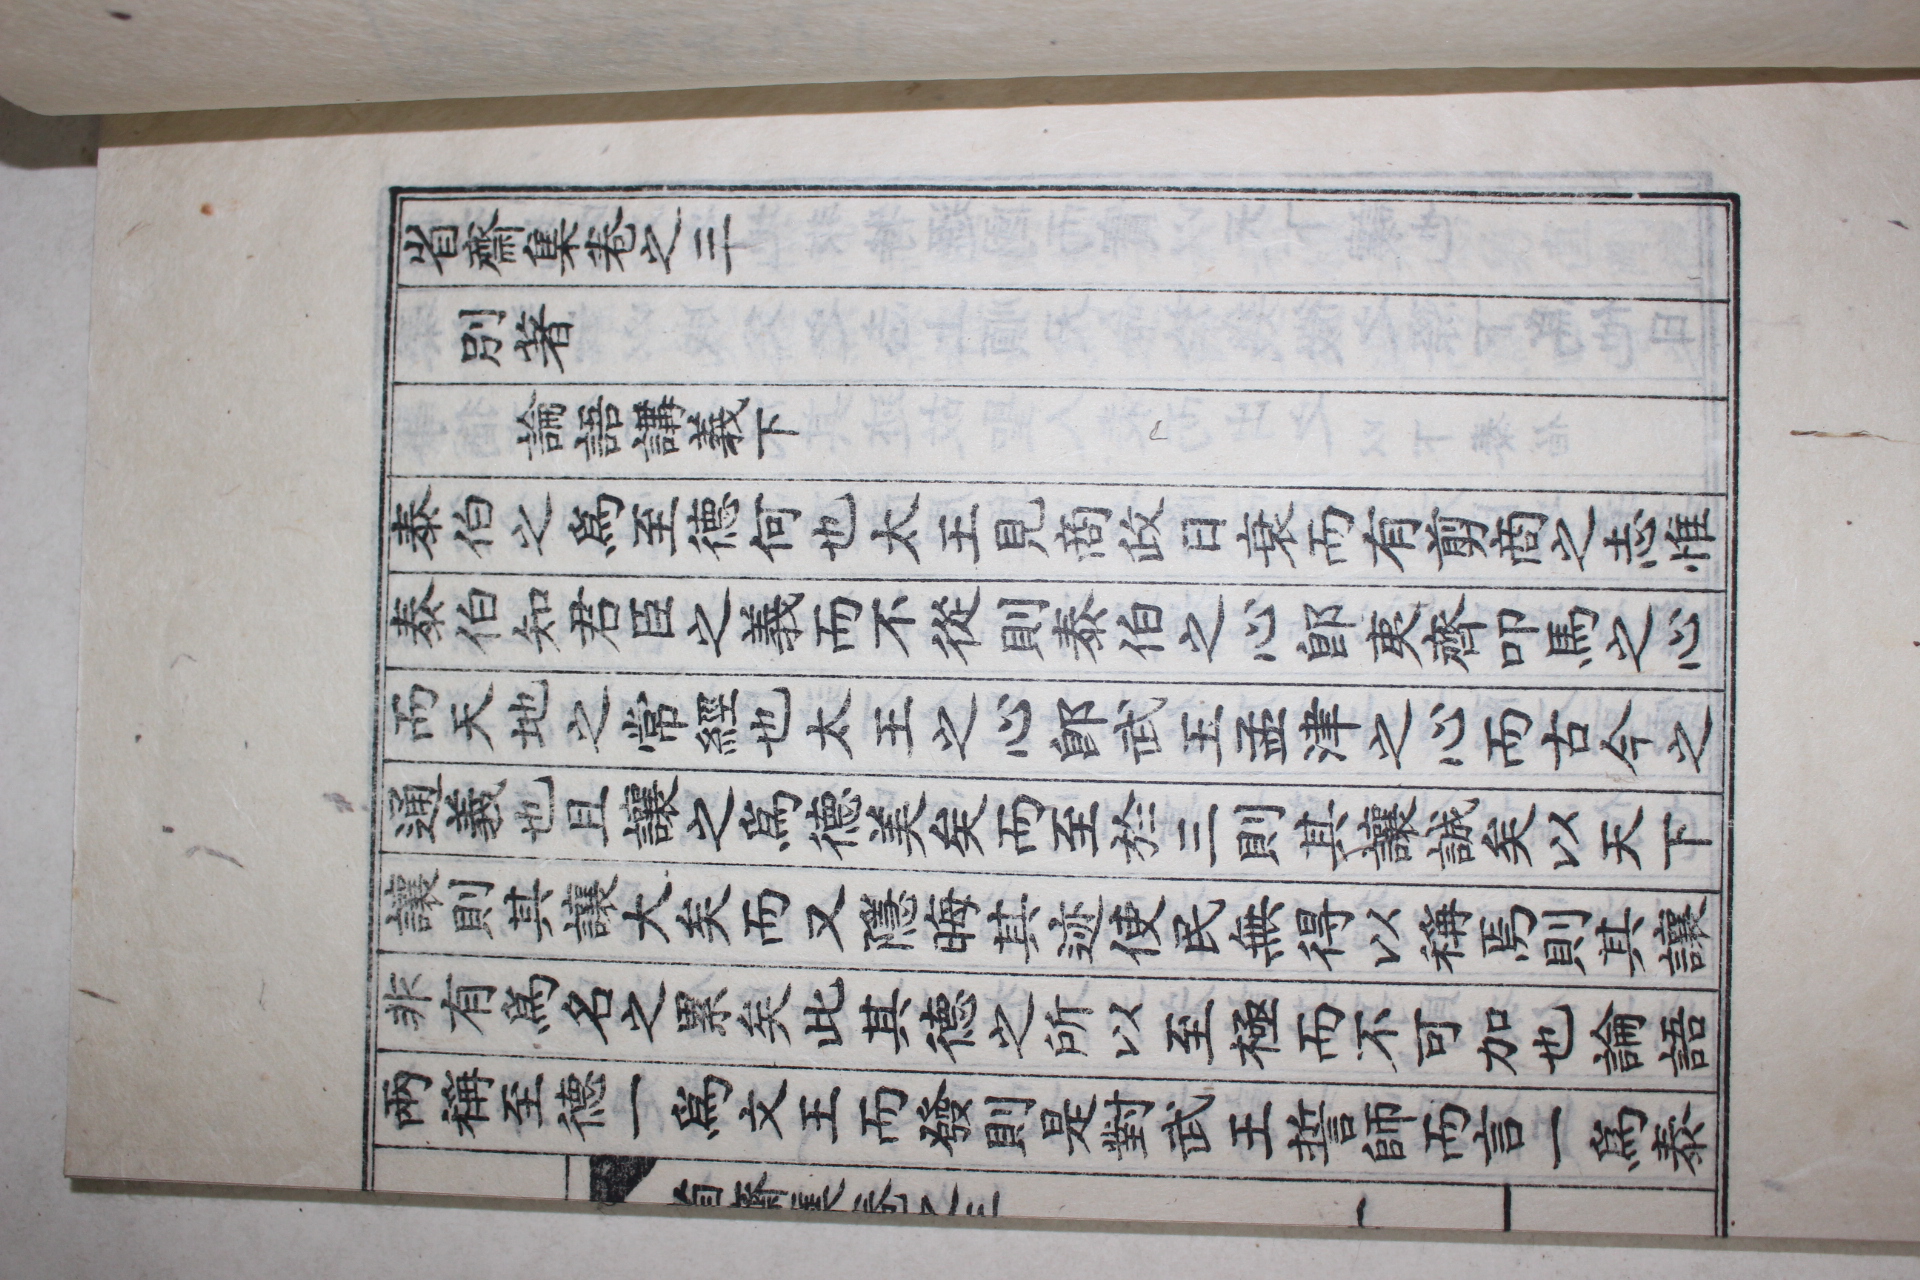 省齋集卷之三
別著
論語講義下
泰伯之爲至德何也太王見商政日衰而有剪商之志惟
泰伯知君臣之義而不從則泰伯之心卽夷齊叩馬之心
而天地之常經也太王之心卽武王孟津之心而古今之
通義也且讓之爲德美矣而至於三則其讓誠矣以天下
讓則其讓大矣而又隱晦其迹使民無得以稱焉則其讓
非有爲名之累矣此其德之所以至極而不可加也論語
兩稱至德一爲文王而發則是對武王誓師而言一爲泰
省齋集卷之三 一